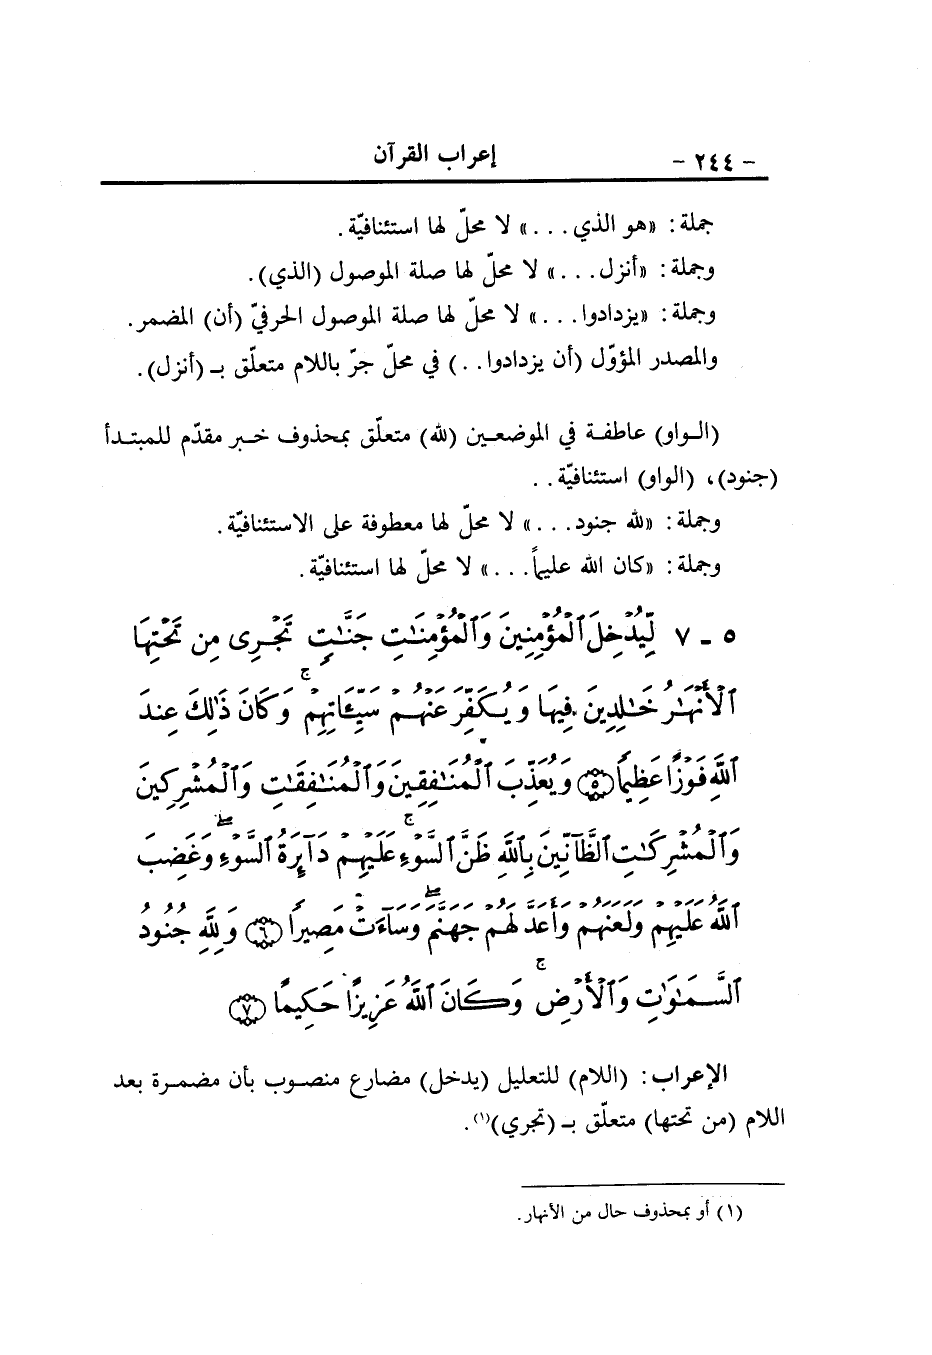 - ٢٤٤ - إعراب القرآن
جملة: «هو الذي...» لا محلّ لها استئنافيّة.
وجملة: «أنزل...» لا محلّ لها صلة الموصول (الذي).
وجملة: «يزدادوا...» لا محلّ لها صلة الموصول الحرفيّ (أن) المضمر.
والمصدر المؤوّل (أن يزدادوا..) في محلّ جرّ باللام متعلّق بـ (أنزل).
(الـواو) عاطفـة في الموضعـين (لله) متعلّق بمحذوف خـبر مقدّم للمبتـدأ
(جنود)، (الواو) استئنافيّة..
وجملة: «لله جنود...» لا محلّ لها معطوفة على الاستئنافيّة.
وجملة: «كان الله عليماً...» لا محلّ لها استئنافيّة.
٥ ـ ٧ لِّيُدْخِلَ ٱلْمُؤْمِنِينَ وَٱلْمُؤْمِنَٰتِ جَنَّٰتٍ تَجْرِى مِن تَحْتِهَا
ٱلْأَنْهَٰرُ خَٰلِدِينَ فِيهَا وَيُكَفِّرَ عَنْهُمْ سَيِّـَٔاتِهِمْ ۚ وَكَانَ ذَٰلِكَ عِندَ
ٱللَّهِ فَوْزًا عَظِيمًا ﴿٥﴾ وَيُعَذِّبَ ٱلْمُنَٰفِقِينَ وَٱلْمُنَٰفِقَٰتِ وَٱلْمُشْرِكِينَ
وَٱلْمُشْرِكَٰتِ ٱلظَّآنِّينَ بِٱللَّهِ ظَنَّ ٱلسَّوْءِ ۚ عَلَيْهِمْ دَآئِرَةُ ٱلسَّوْءِ ۖ وَغَضِبَ
ٱللَّهُ عَلَيْهِمْ وَلَعَنَهُمْ وَأَعَدَّ لَهُمْ جَهَنَّمَ ۖ وَسَآءَتْ مَصِيرًا ﴿٦﴾ وَلِلَّهِ جُنُودُ
ٱلسَّمَٰوَٰتِ وَٱلْأَرْضِ ۚ وَكَانَ ٱللَّهُ عَزِيزًا حَكِيمًا ﴿٧﴾
الإعراب: (اللام) للتعليل (يدخل) مضارع منصـوب بأن مضمـرة بعد
اللام (من تحتها) متعلّق بـ (تجري)(١).
(١) أو بمحذوف حال من الأنهار.